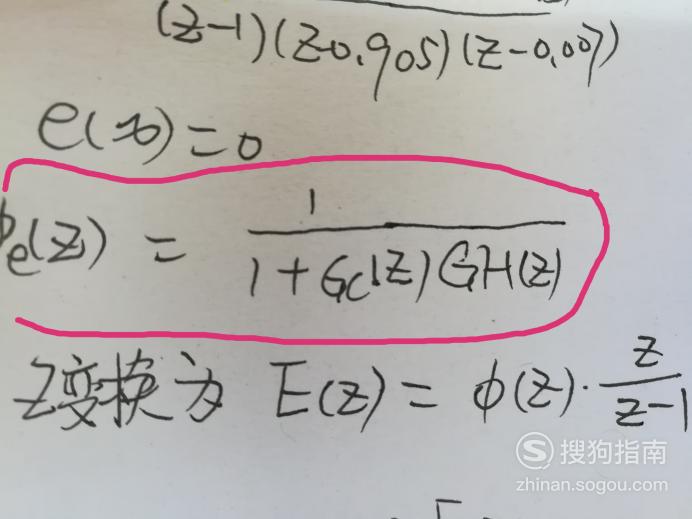 (z-1)(z0.905)(z-0.007)
e(∞)=0
ϕe(z) = 1/(1+Gc(z)GH(z))
Z变换为 E(z)=ϕ(z)·z/(z-1)
搜狗指南
zhinan.sogou.com